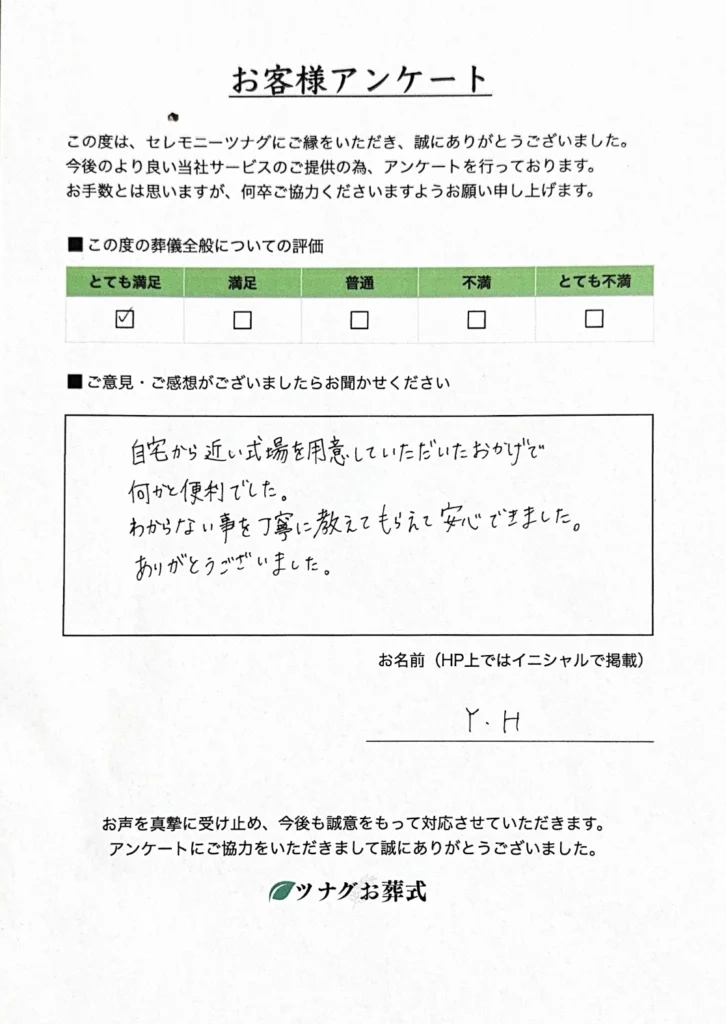 お客様アンケート
この度は、セレモニーツナグにご縁をいただき、誠にありがとうございました。
今後のより良い当社サービスのご提供の為、アンケートを行っております。
お手数とは思いますが、何卒ご協力くださいますようお願い申し上げます。
■この度の葬儀全般についての評価
とても満足 満足 普通 不満 とても不満
☑ □ □ □ □
■ご意見・ご感想がございましたらお聞かせください
自宅から近い式場を用意していただいたおかげで
何かと便利でした。
わからない事を丁寧に教えてもらえて安心できました。
ありがとうございました。
お名前（HP上ではイニシャルで掲載）
Y.H
お声を真摯に受け止め、今後も誠意をもって対応させていただきます。
アンケートにご協力をいただきまして誠にありがとうございました。
ツナグお葬式